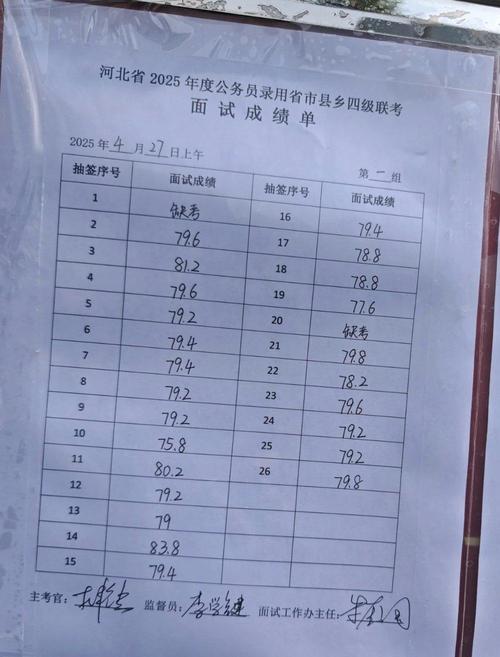 河北省 2025 年度公务员录用省市县乡四级联考
面试成绩单
2025 年 4 月 27 日上午 第 一 组
抽签序号 面试成绩 抽签序号 面试成绩
1 缺考 16 79.4
2 79.6 17 78.8
3 81.2 18 78.8
4 79.6 19 77.6
5 79.2 20 缺考
6 79.4 21 79.8
7 79.4 22 78.2
8 79.2 23 79.6
9 79.2 24 79.2
10 75.8 25 79.2
11 80.2 26 79.8
12 79.2
13 79
14 83.8
15 79.4
主考官： 监督员： 面试工作办主任：